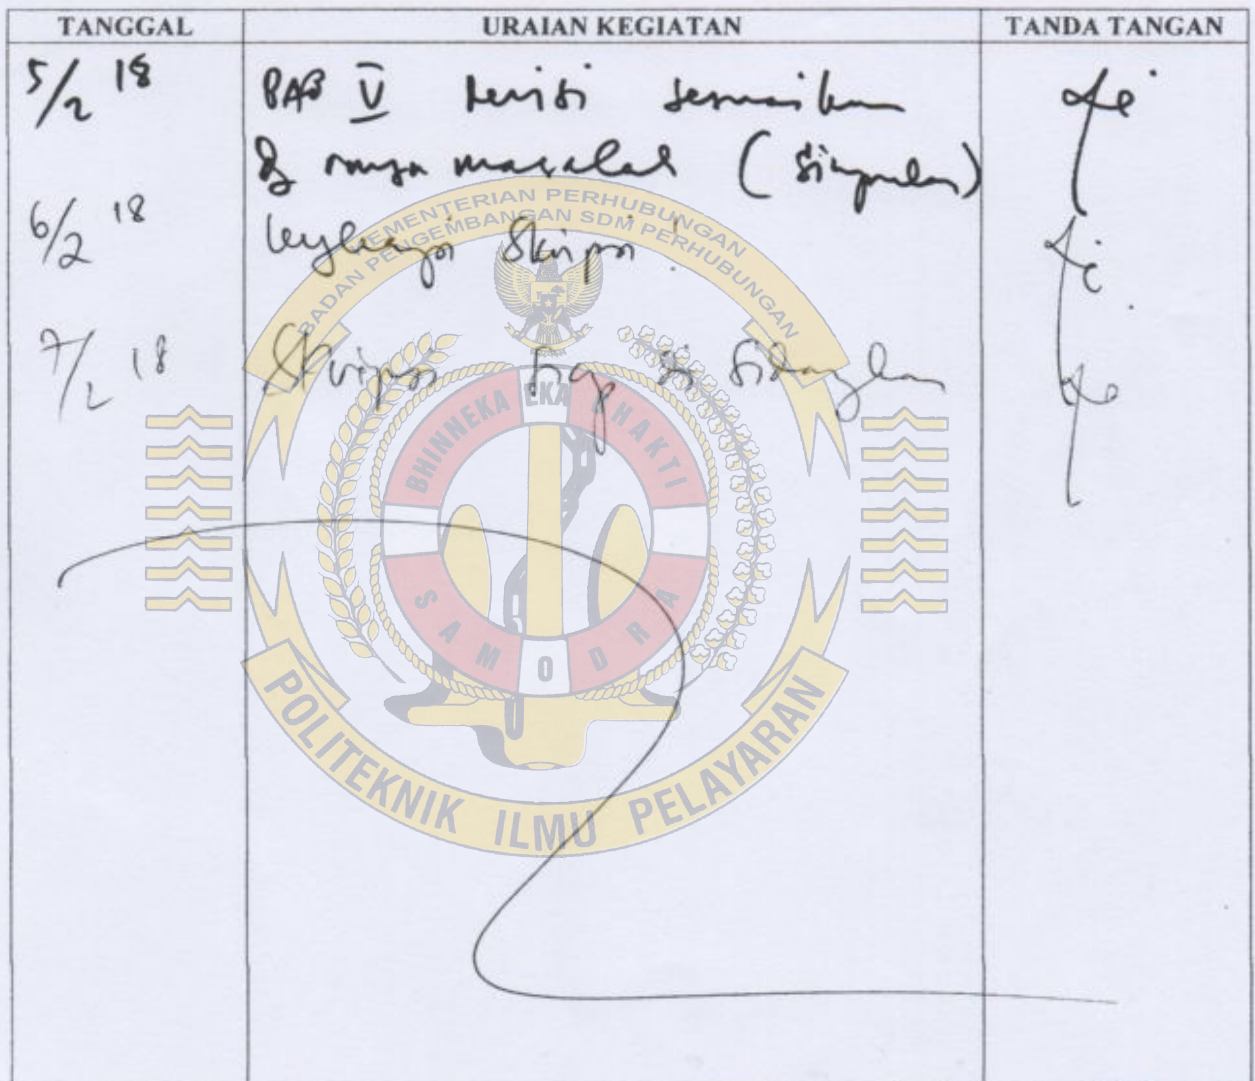 TANGGAL URAIAN KEGIATAN TANDA TANGAN
5/2 18 BAB V revisi sesuaikan
dg rumusan masalah (simpulan)
6/2 18 lengkapi Skripsi!
7/2 18 Skripsi siap di sidangkan
KEMENTERIAN PERHUBUNGAN
BADAN PENGEMBANGAN SDM PERHUBUNGAN
BHINNEKA EKA BHAKTI
SAMODRA
POLITEKNIK ILMU PELAYARAN